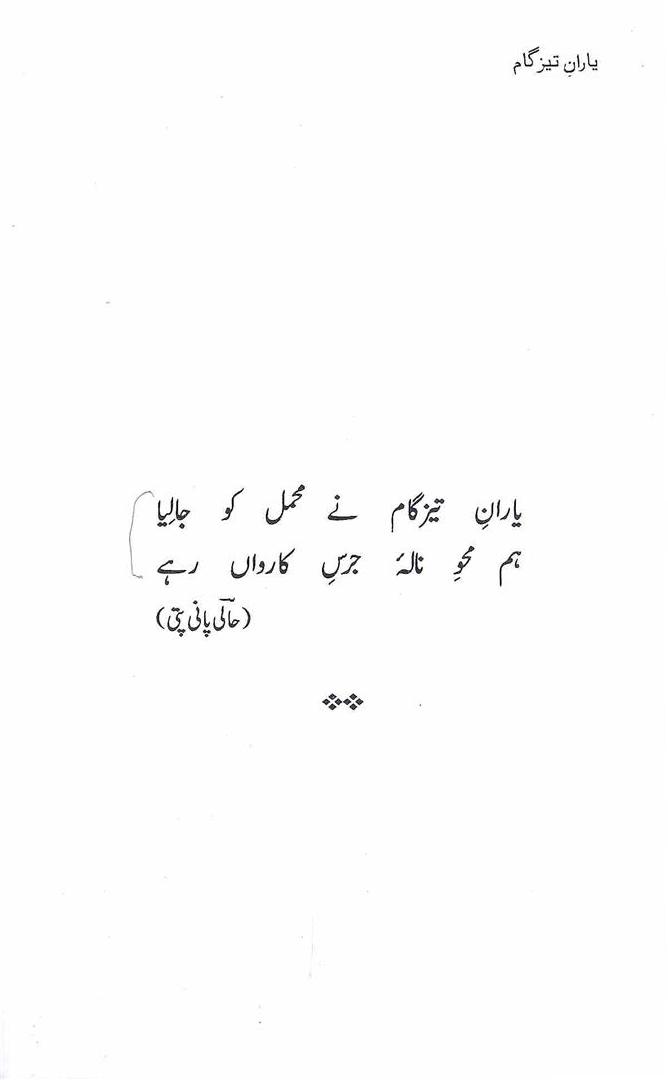 یارانِ تیزگام
یارانِ تیزگام نے محمل کو جالِیا
ہم محوِ نالۂ جرسِ کارواں رہے
(حالؔی پانی پتی)